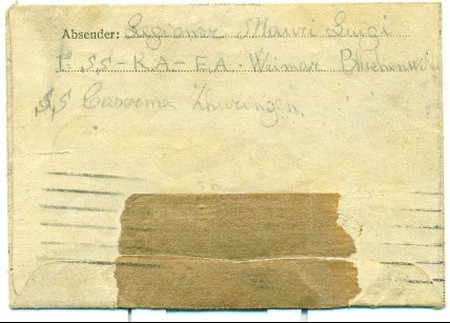 Absender: Legionar Mauri Luigi
1. SS-KA-EA. Weimar Buchenwa
SS Caserma Thuringen.